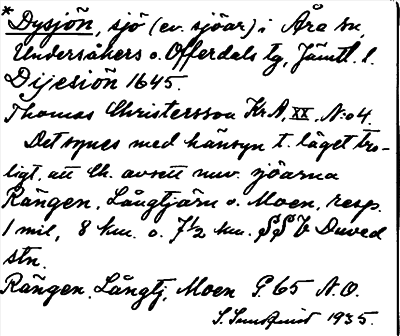 * Dysjön, sjö (ev. sjöar) i Åre sn,
Undersåkers o. Offerdals tg, Jämtl. l.
Dijesiön 1645.
Thomas Christersson Kr.A, XX, N:o 4.
Det synes med hänsyn t. läget tro-
ligt, att Ch. avsett nuv. sjöarna
Rängen, Långtjärn o. Moen, resp.
1 mil, 8 km. o. 7½ km. SSV Duved
stn.
Rängen, Långtj, Moen G. 65 N.O.
S. 1935.